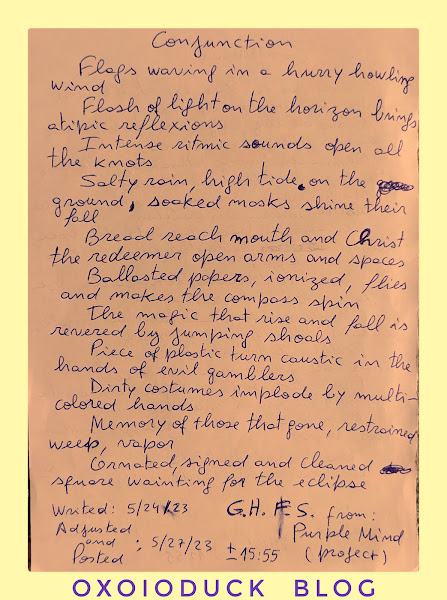 Conjunction
Flags waving in a hurry howling
wind
Flash of light on the horizon brings
atipic reflexions
Intense ritmic sounds open all
the knots
Salty rain, high tide, on the
ground, soaked masks shine their
fall
Bread reach mouth and Christ
the redeemer open arms and spaces
Ballasted papers, ionized, flies
and makes the compass spin
The magic that rise and fall is
revered by jumping shoals
Piece of plastic turn caustic in the
hands of evil gamblers
Dirty costumes implode by multi-
colored hands
Memory of those that gone, restrained
weep, vapor
Cornated, signed and cleaned
square wainting for the eclipse
Writed: 5/24/23 G.H.F.S. from:
Adjusted Purple Mind
and : 5/27/23 ± 15:55 (project)
Posted
OXOIODUCK BLOG